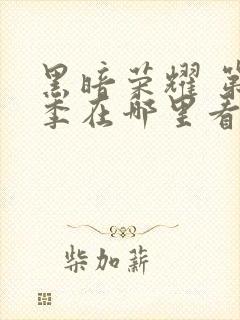 黑暗荣耀 第
季在哪里看
柴加薪